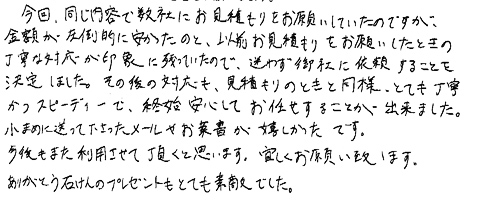 今回、同じ内容で数社にお見積もりをお願いしていたのですが、
金額が圧倒的に安かったのと、以前お見積もりをお願いしたときの
丁寧な対応が印象に残っていたので、迷わず御社に依頼することを
決定しました。その後の対応も、見積もりのときと同様、とても丁寧
かつスピーディーで、終始安心してお任せすることが出来ました。
小まめに送って下さったメールやお葉書が嬉しかったです。
今後もまた利用させて頂くと思います。宜しくお願い致します。
ありがとう石けんのプレゼントもとても素敵でした。